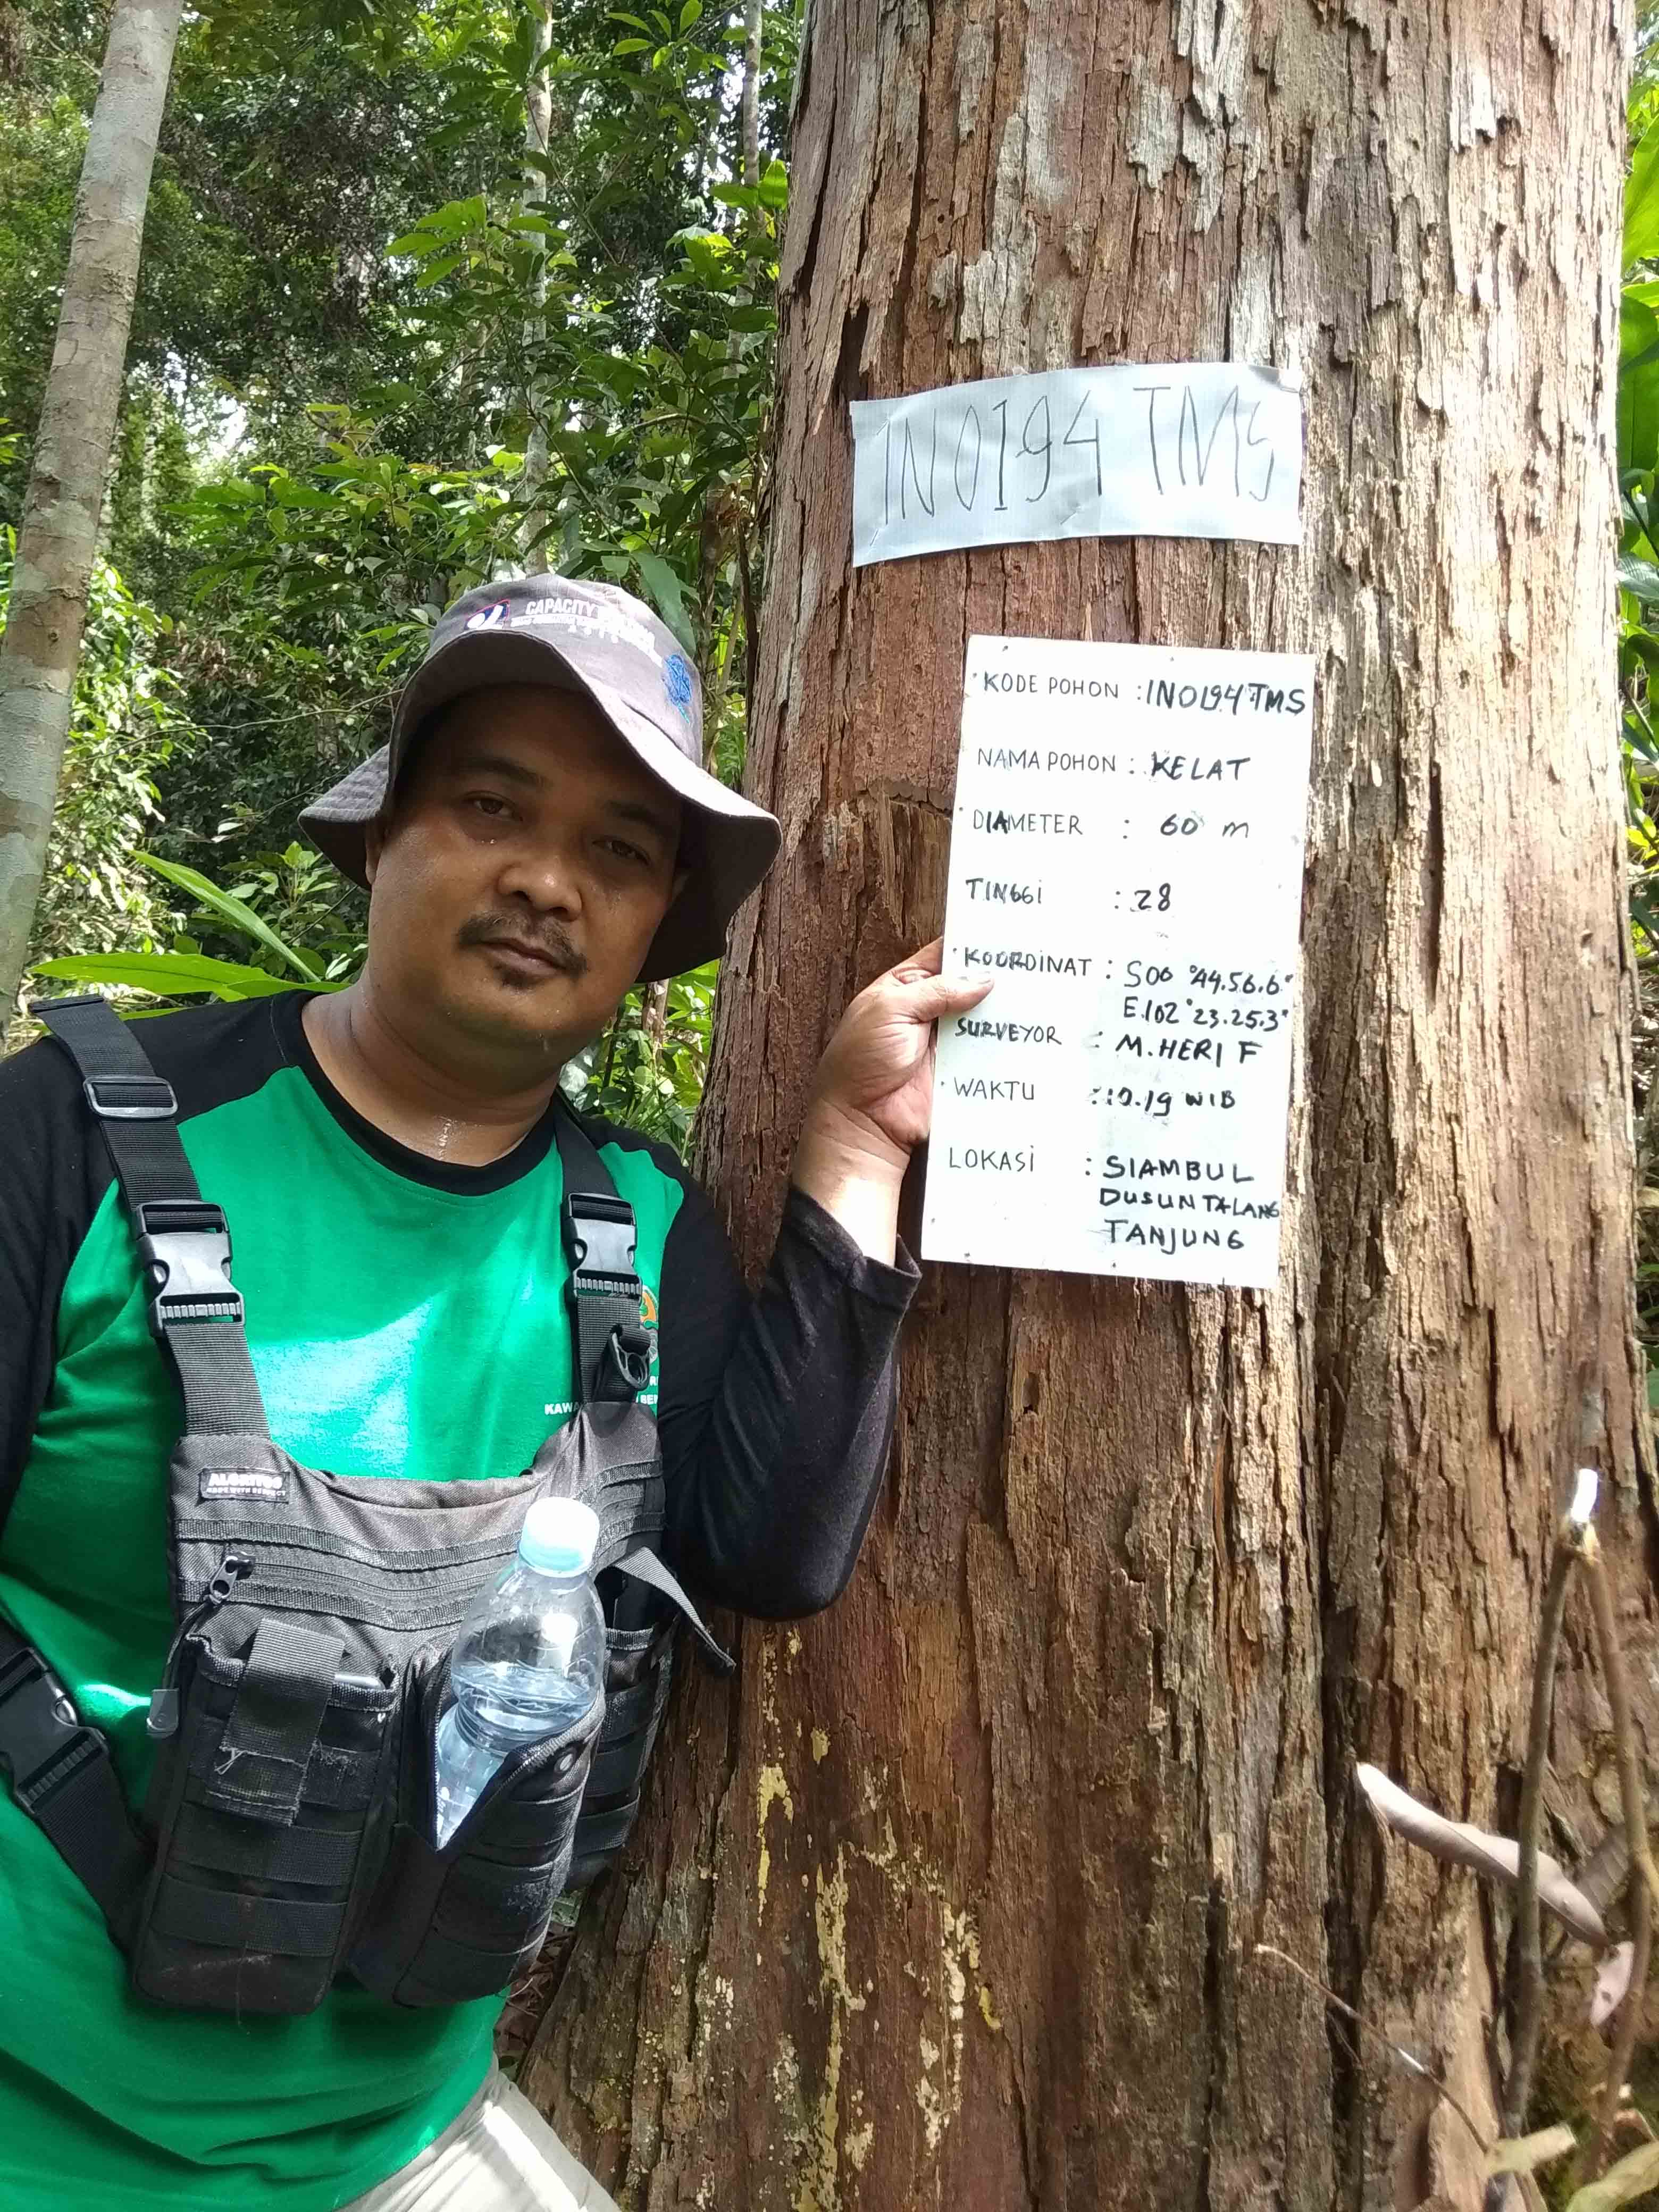 IN0194 TMS
KODE POHON : IN0194 TMS
NAMA POHON : KELAT
DIAMETER : 60 m
TINGGI : 28
KOORDINAT : S00°44.56.6"
E.102°23.25.3"
SURVEYOR : M. HERI F
WAKTU : 10.19 WIB
LOKASI : SIAMBUL
DUSUN TALANG
TANJUNG
CAPACITY